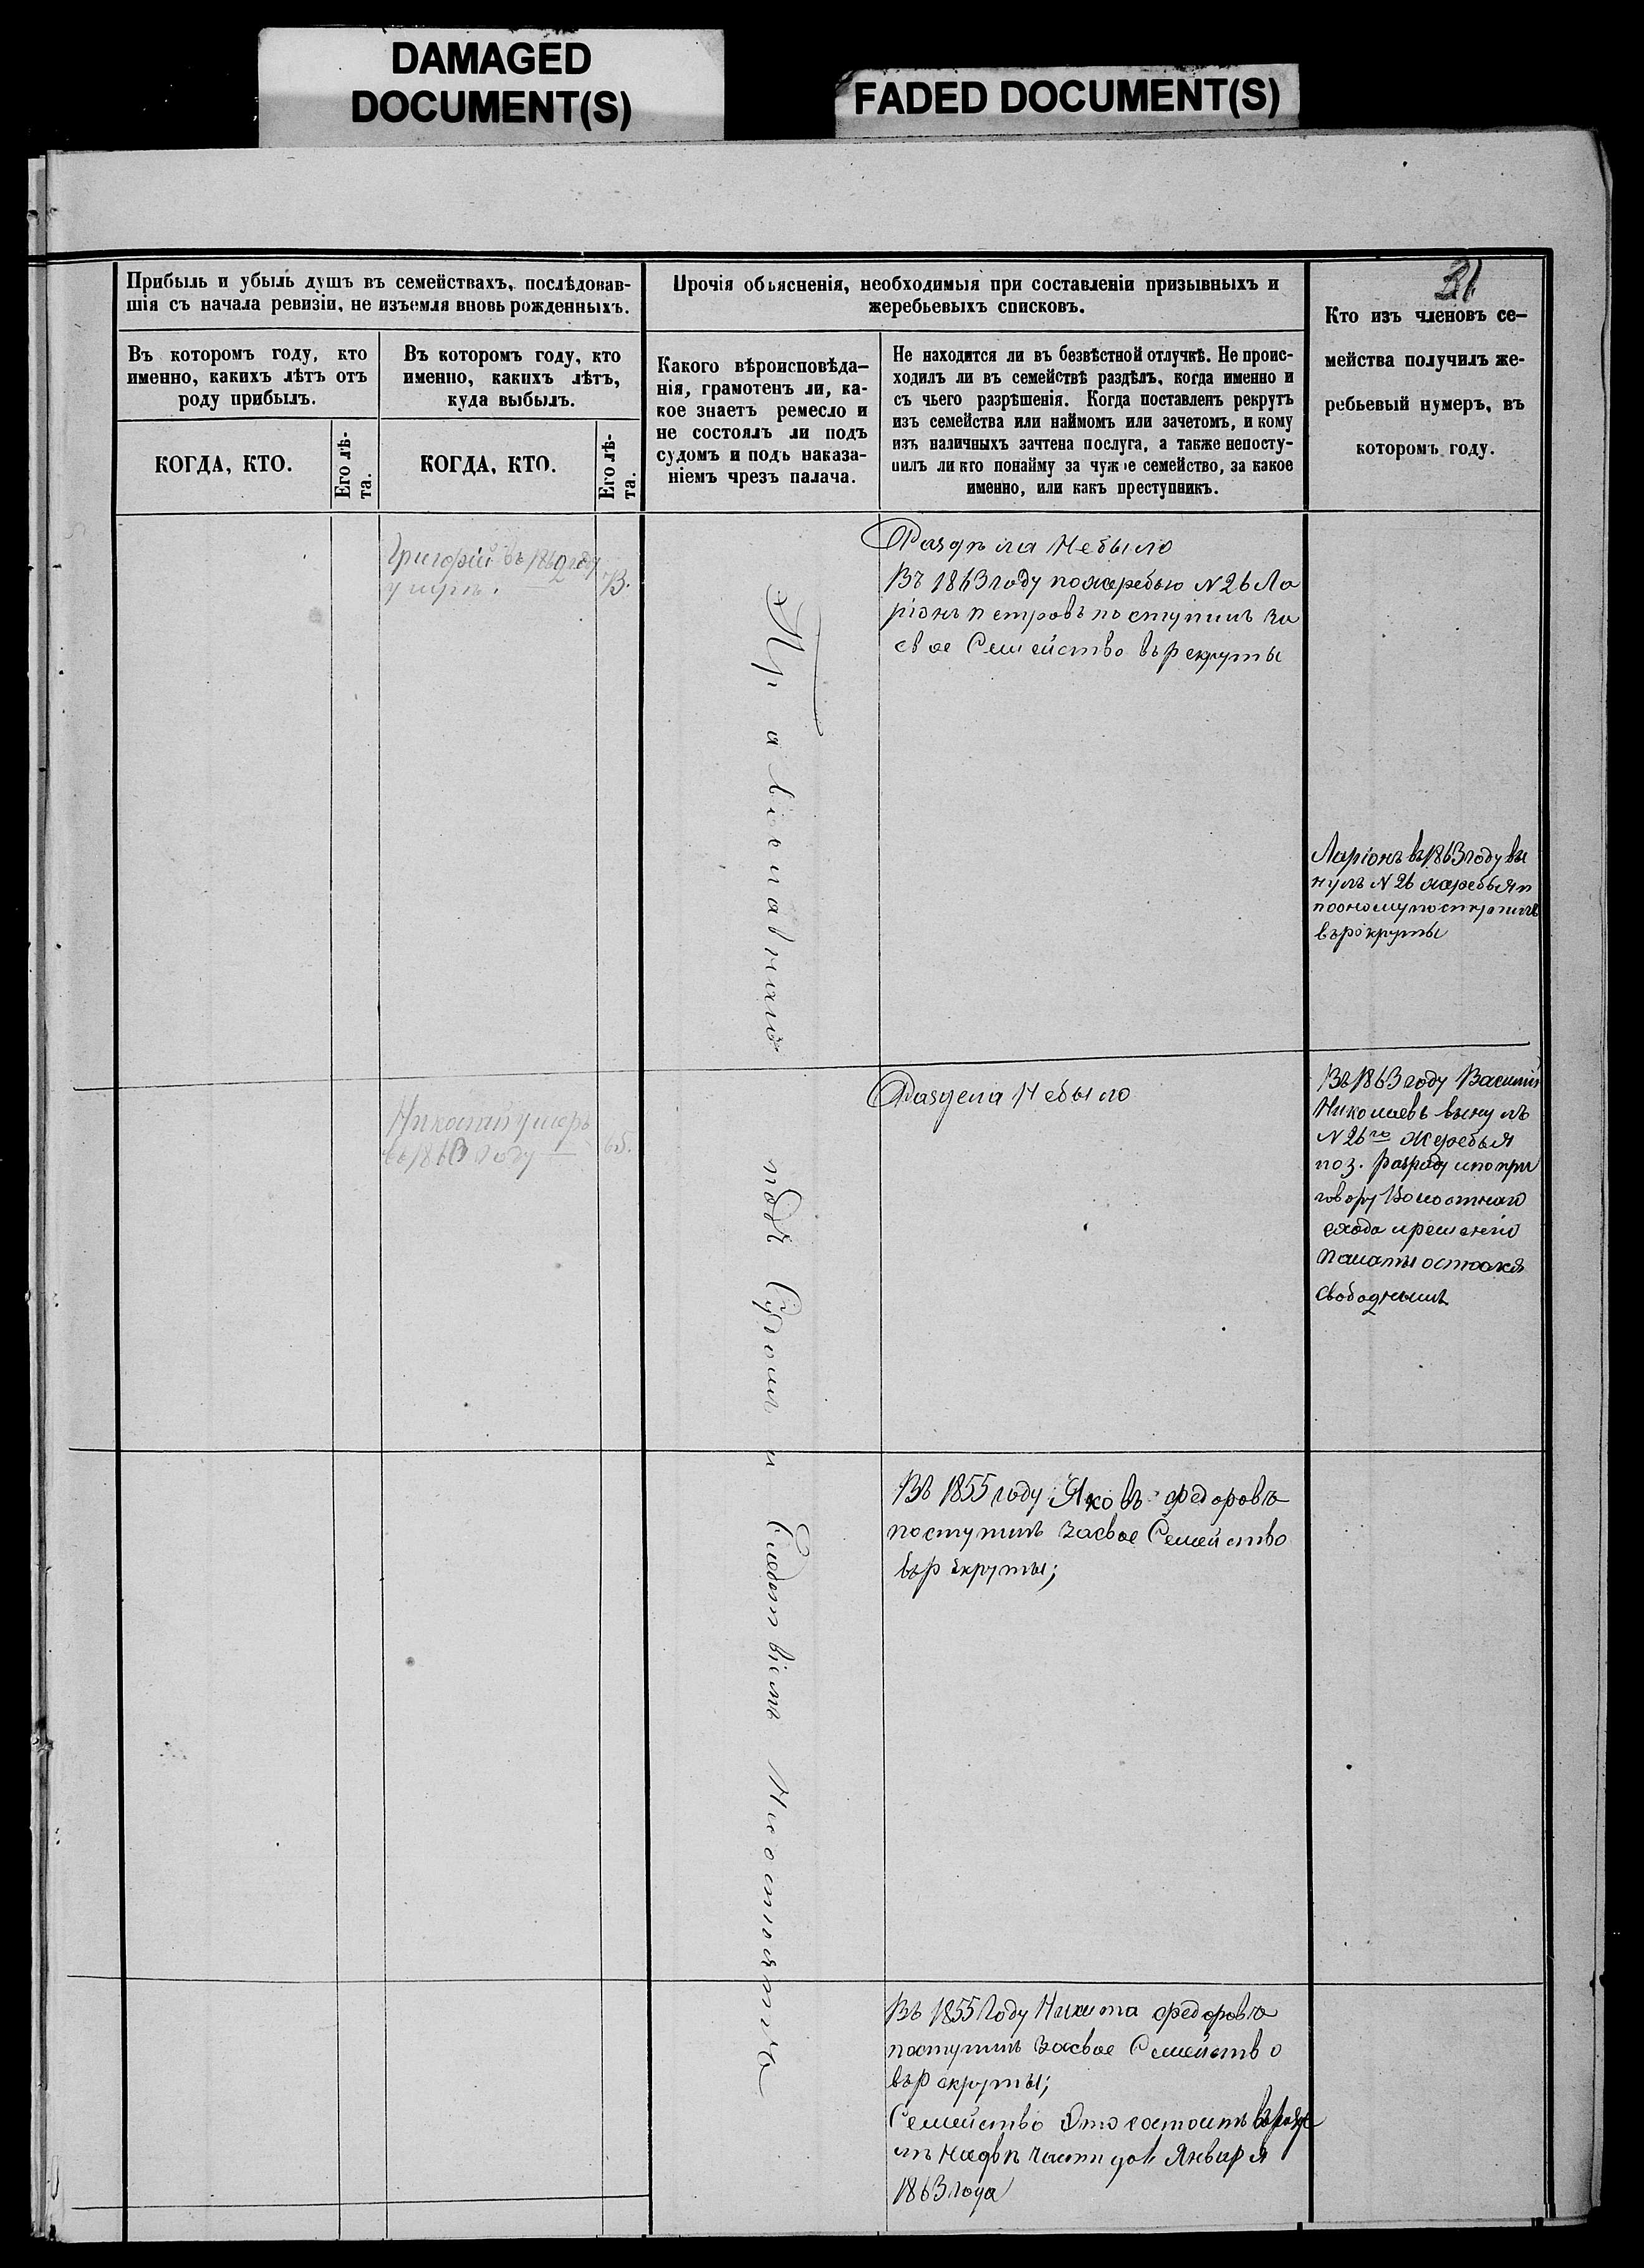 DAMAGED
DOCUMENT(S)
FADED DOCUMENT(S)
31
Прибыль и убыль душъ въ семействахъ, послѣдовав-
шія съ начала ревизіи, не изъемля вновь рожденныхъ.
Прочія объясненія, необходимыя при составленіи призывныхъ и
жеребьевыхъ списковъ.
Кто изъ членовъ се-
мейства получилъ же-
ребьевый нумеръ, въ
которомъ году.
Въ которомъ году, кто
именно, какихъ лѣтъ отъ
роду прибылъ.
Въ которомъ году, кто
именно, какихъ лѣтъ,
куда выбылъ.
Какого вѣроисповѣда-
нія, грамотенъ ли, ка-
кое знаетъ ремесло и
не состоялъ ли подъ
судомъ и подъ наказа-
ніемъ чрезъ палача.
Не находится ли въ безвѣстной отлучкѣ. Не проис-
ходилъ ли въ семействѣ раздѣлъ, когда именно и
съ чьего разрѣшенія. Когда поставленъ рекрутъ
изъ семейства или наймомъ или зачетомъ, и кому
изъ наличныхъ зачтена послуга, а также непосту-
пилъ ли кто понайму за чужое семейство, за какое
именно, или какъ преступникъ.
КОГДА, КТО.
Его лѣ-
та.
КОГДА, КТО.
Его лѣ-
та.
Григорій въ 1862 году
умеръ.
Православнаго подъ Судомъ и Следствіемъ Несостоятъ
Раздѣла Небыло
Въ 1863 году пожеребью N 26 Ла
ріонъ Петровъ поступилъ за
свое Семейство въ рекруты
Ларіонъ въ 1863 году вы
нулъ N 26 жеребья и
поономупоступилъ
въ рекруты
Николай умеръ
въ 1863 году
65.
Раздела Небыло
Въ 1863 году Василий
Николаевъ вынулъ
N 26го жеребья
по 3. разряду и по при
говору Волостнаго
схода и решенію
Палаты остался
свободнымъ
Въ 1855 году Яковъ Федоровъ
поступилъ за свое Семейство
въ рекруты;
Въ 1855 Году Никита Федоровъ
поступилъ за свое Семейство
въ рекруты;
Семейство Это состоитъ в разде
лѣ на двѣ части до 1 Января
1863 года